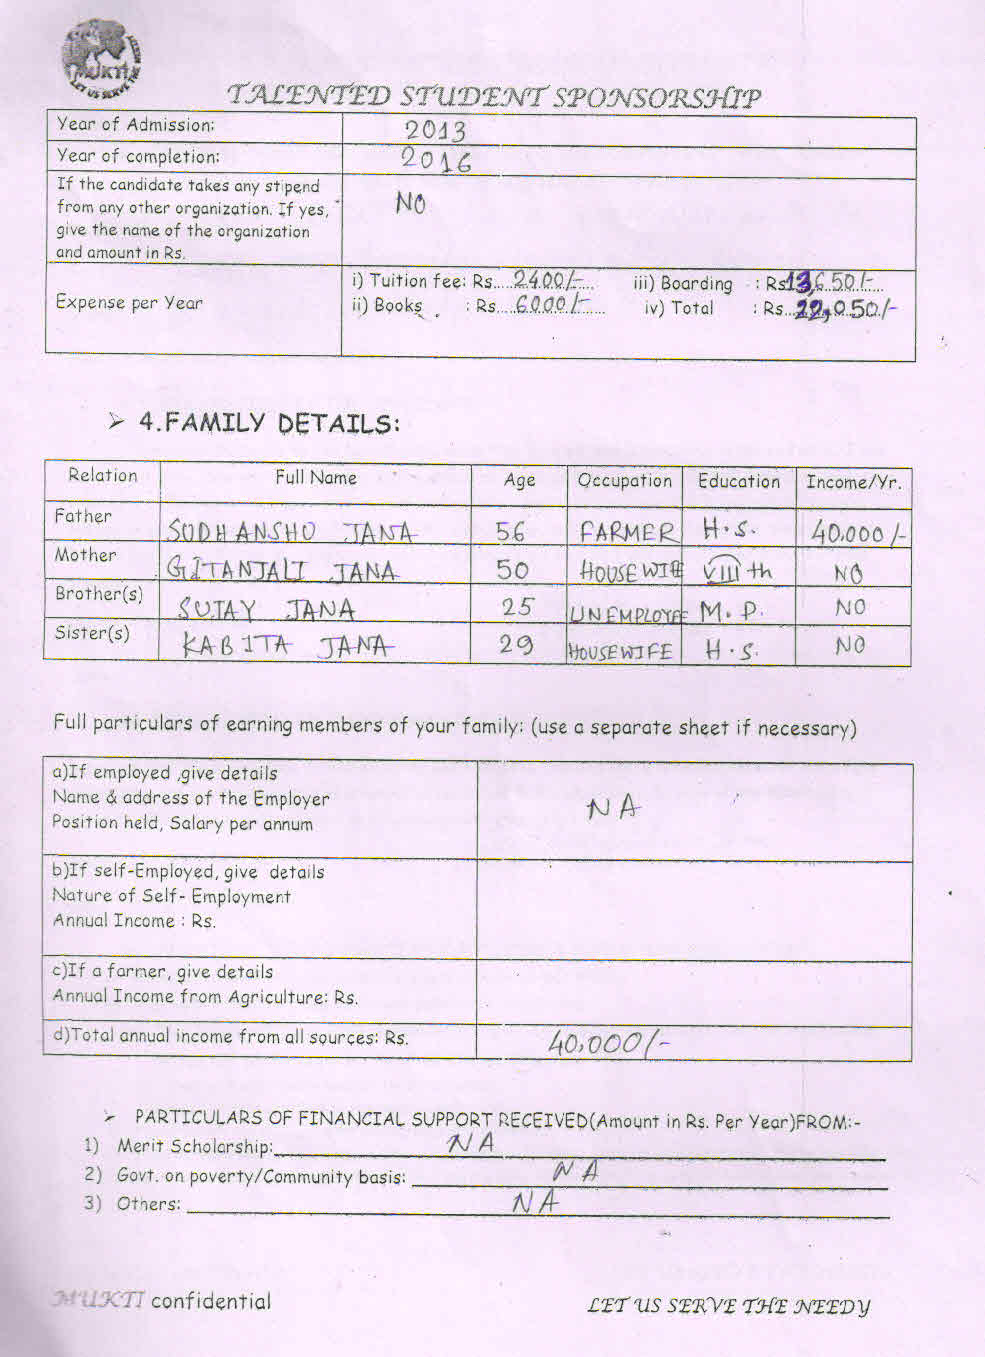 MUKTI
LET US SERVE THE NEEDY
TALENTED STUDENT SPONSORSHIP
Year of Admission: 2013
Year of completion: 2016
If the candidate takes any stipend
from any other organization. If yes, NO
give the name of the organization
and amount in Rs.
Expense per Year
i) Tuition fee: Rs.....2400/-..... iii) Boarding : Rs13,650/-....
ii) Books : Rs....6000/-...... iv) Total : Rs...22,050/-
➢ 4.FAMILY DETAILS:
Relation Full Name Age Occupation Education Income/Yr.
Father SUDHANSHU JANA 56 FARMER H.S. 40,000/-
Mother GITANJALI JANA 50 HOUSEWIFE VIII th NO
Brother(s) SUJAY JANA 25 UNEMPLOYEE M.P. NO
Sister(s) KABITA JANA 29 HOUSEWIFE H.S. NO
Full particulars of earning members of your family: (use a separate sheet if necessary)
a)If employed ,give details
Name & address of the Employer NA
Position held, Salary per annum
b)If self-Employed, give details
Nature of Self- Employment
Annual Income : Rs.
c)If a farmer, give details
Annual Income from Agriculture: Rs.
d)Total annual income from all sources: Rs. 40,000/-
➢ PARTICULARS OF FINANCIAL SUPPORT RECEIVED(Amount in Rs. Per Year)FROM:-
1) Merit Scholarship: NA
2) Govt. on poverty/Community basis: NA
3) Others: NA
MUKTI confidential LET US SERVE THE NEEDY